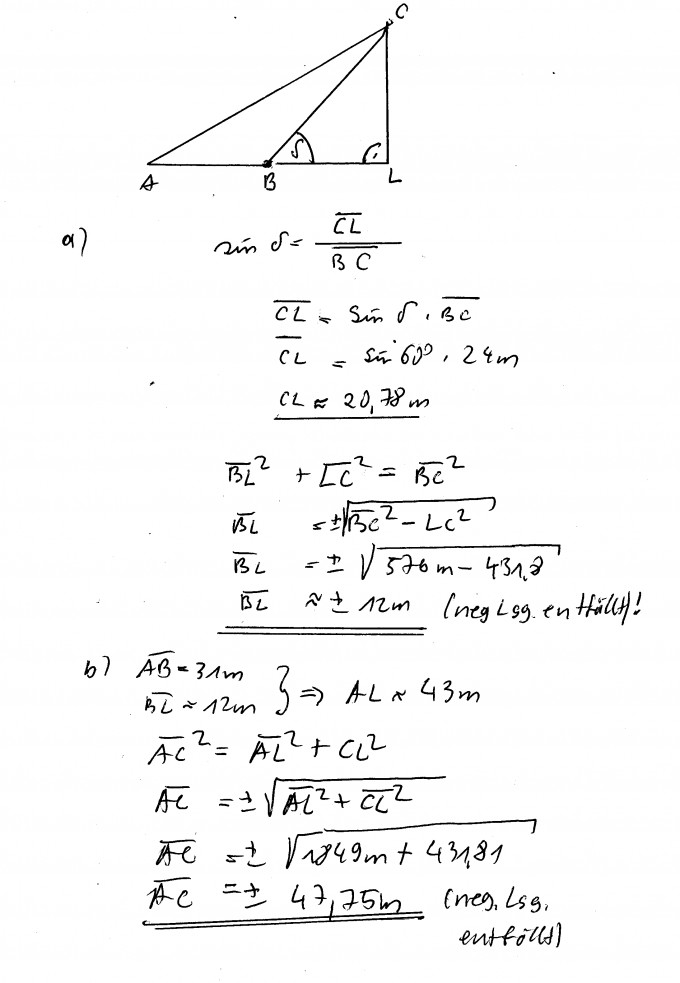 C
δ
A B L
a) sin δ = CL / BC
CL = sin δ · BC
CL = sin 60° · 24m
CL ≈ 20,78m
BL² + LC² = BC²
BL = ±√BC² - LC²
BL = ±√576m - 431,8
BL ≈ ± 12m (neg Lsg. entfällt)!
b) AB = 31m
BL ≈ 12m } ⇒ AL ≈ 43m
AC² = AL² + CL²
AC = ±√AL² + CL²
AC = ±√1849m + 431,81
AC = ± 47,75m (neg. Lsg.
entfällt)